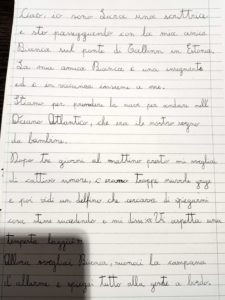 Ciao, io sono Sara una scrittrice
e sto passeggiando con la mia amica
Bianca sul ponte di Tallinn in Estonia.
La mia amica Bianca è una insegnante
ed è in vacanza insieme a me.
Stiamo per prendere la nave per andare nell'
Oceano Atlantico, che era il nostro sogno
da bambine.
Dopo tre giorni al mattino presto mi svegliai
di cattivo umore, c'erano troppe nuvole
e poi vidi un delfino che cercava di spiegarmi
cosa stava succedendo e mi disse << Vi aspetta una
tempesta laggiù>>
Allora svegliai Bianca, suonai la campana
d'allarme e spiegai tutto alla gente a bordo.